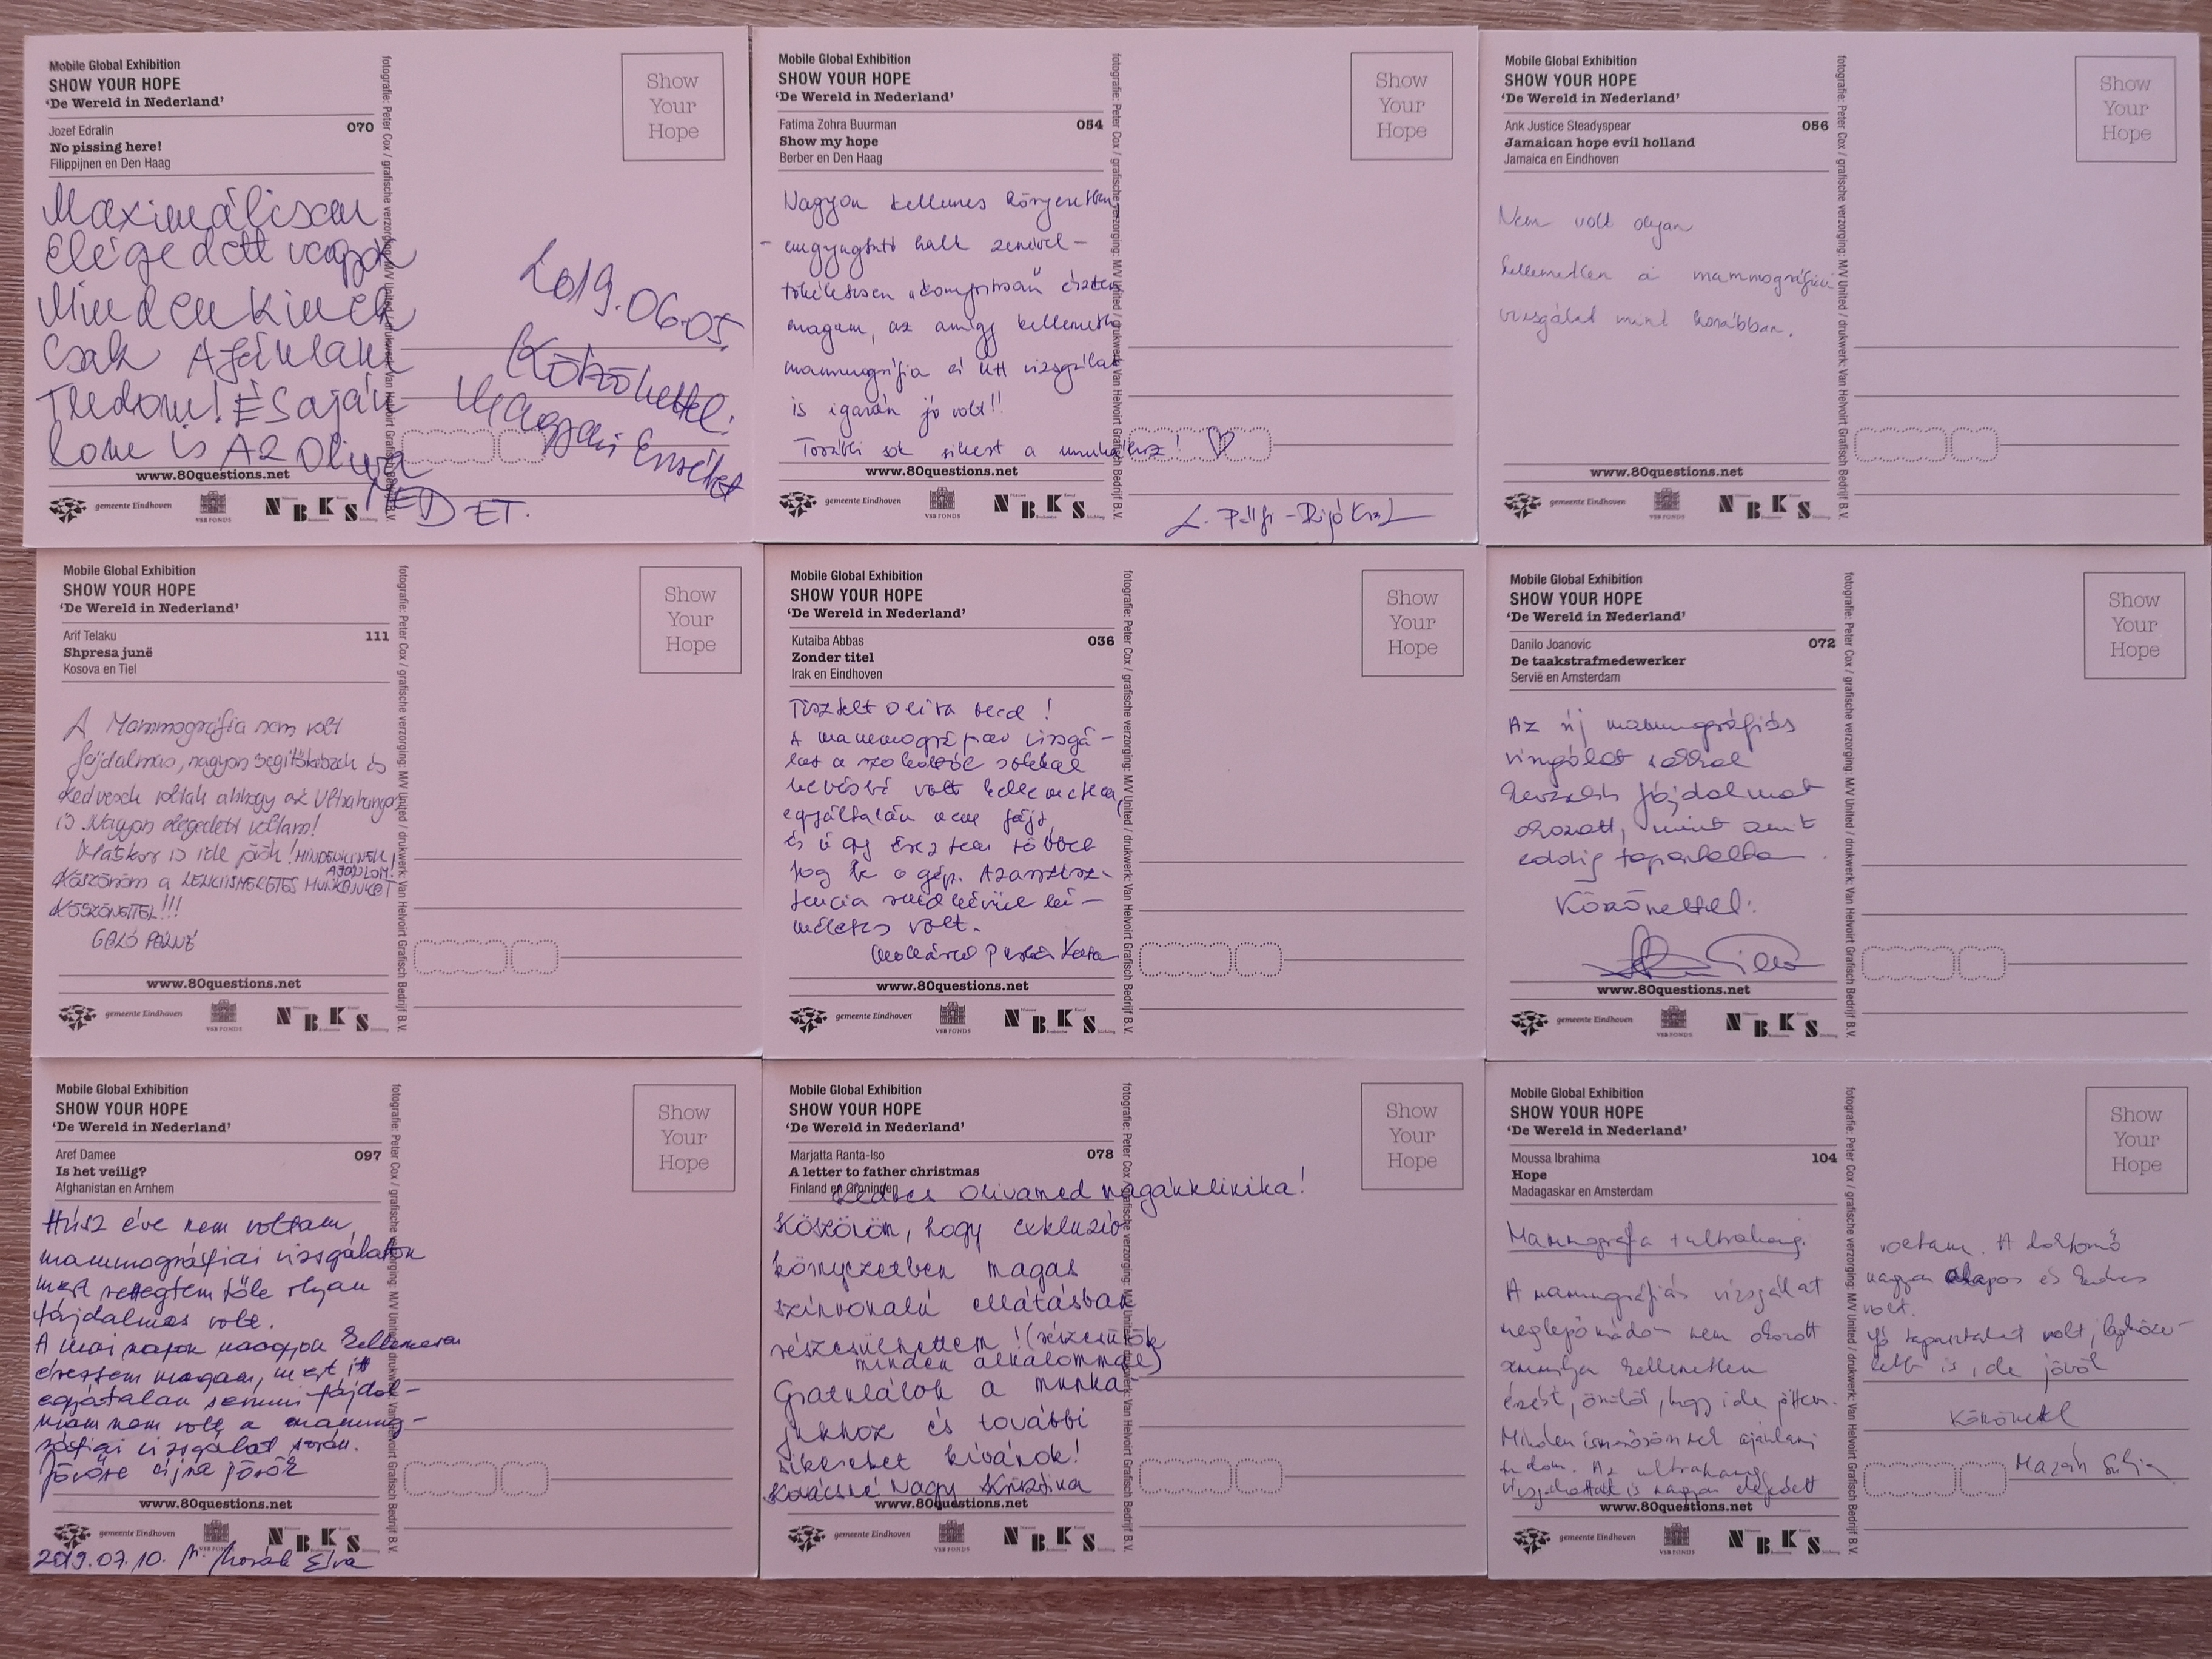 Mobile Global Exhibition
SHOW YOUR HOPE
‘De Wereld in Nederland’
Jozef Edralin 070
No pissing here!
Filippijnen en Den Haag
Show
Your
Hope
fotografie: Peter Cox / grafische verzorging: M/V United / drukwerk: Van Helvoirt Grafisch Bedrijf B.V.
Maximálisan
Elégedett vagyok
Mindenkinek
Csak Ajánlani
Tudom! És aján
lom is Az Oliva
MED ET.
2019.06.05.
Köszönettel:
Erzsébet
www.80questions.net
gemeente Eindhoven
VSB FONDS
NBKS
Mobile Global Exhibition
SHOW YOUR HOPE
‘De Wereld in Nederland’
Fatima Zohra Buurman 054
Show my hope
Berber en Den Haag
Show
Your
Hope
fotografie: Peter Cox / grafische verzorging: M/V United / drukwerk: Van Helvoirt Grafisch Bedrijf B.V.
Nagyon kellemes környezetben
- megnyugtató halk zenével -
tökéletesen éreztem
magam, az amúgy kellemetlen
mammográfia és UH vizsgálat
is igazán jó volt!!
További sok sikert a munkához! ♡
www.80questions.net
gemeente Eindhoven
VSB FONDS
NBKS
Mobile Global Exhibition
SHOW YOUR HOPE
‘De Wereld in Nederland’
Ank Justice Steadyspear 056
Jamaican hope evil holland
Jamaica en Eindhoven
Show
Your
Hope
fotografie: Peter Cox / grafische verzorging: M/V United / drukwerk: Van Helvoirt Grafisch Bedrijf B.V.
Nem volt olyan
kellemetlen a mammográfiai
vizsgálat mint korábban.
www.80questions.net
gemeente Eindhoven
VSB FONDS
NBKS
Mobile Global Exhibition
SHOW YOUR HOPE
‘De Wereld in Nederland’
Arif Telaku 111
Shpresa junë
Kosova en Tiel
Show
Your
Hope
fotografie: Peter Cox / grafische verzorging: M/V United / drukwerk: Van Helvoirt Grafisch Bedrijf B.V.
A Mammográfia nem volt
fájdalmas, nagyon segítőkészek és
kedvesek voltak ahhogy az Ultrahangon
is. Nagyon elégedett voltam!
Máskor is ide jövök! MINDENKINEK
AJÁNLOM!
Köszönöm a LELKIISMERETES MUNKÁJUKAT
KÖSZÖNETTEL!!!
PÁLNÉ
www.80questions.net
gemeente Eindhoven
VSB FONDS
NBKS
Mobile Global Exhibition
SHOW YOUR HOPE
‘De Wereld in Nederland’
Kutaiba Abbas 036
Zonder titel
Irak en Eindhoven
Show
Your
Hope
fotografie: Peter Cox / grafische verzorging: M/V United / drukwerk: Van Helvoirt Grafisch Bedrijf B.V.
Tisztelt Oliva Med!
A mammográfiás vizsgá-
lat a szokottól sokkal
kevésbé volt kellemetlen,
egyáltalán nem fájt,
és úgy éreztem többet
fog be a gép. Az asszisz-
tencia rendkívül kí-
méletes volt.
Kata
www.80questions.net
gemeente Eindhoven
VSB FONDS
NBKS
Mobile Global Exhibition
SHOW YOUR HOPE
‘De Wereld in Nederland’
Danilo Joanovic 072
De taakstrafmedewerker
Servië en Amsterdam
Show
Your
Hope
fotografie: Peter Cox / grafische verzorging: M/V United / drukwerk: Van Helvoirt Grafisch Bedrijf B.V.
Az új mammográfiás
vizsgálat sokkal
kevesebb fájdalmat
okozott, mint amit
eddig tapasztaltam.
Köszönettel:
www.80questions.net
gemeente Eindhoven
VSB FONDS
NBKS
Mobile Global Exhibition
SHOW YOUR HOPE
‘De Wereld in Nederland’
Aref Damee 097
Is het veilig?
Afghanistan en Arnhem
Show
Your
Hope
fotografie: Peter Cox / grafische verzorging: M/V United / drukwerk: Van Helvoirt Grafisch Bedrijf B.V.
Húsz éve nem voltam
mammográfiai vizsgálaton
mert rettegtem tőle olyan
fájdalmas volt.
A mai napon nagyon kellemesen
éreztem magam, mert itt
egyátalan semmi fájdal-
mam nem volt a mammog-
ráfiai vizsgálat során.
Jövőre újra jövök
www.80questions.net
gemeente Eindhoven
VSB FONDS
NBKS
2019.07.10. Éva
Mobile Global Exhibition
SHOW YOUR HOPE
‘De Wereld in Nederland’
Marjatta Ranta-Iso 078
A letter to father christmas
Finland en Groningen
Show
Your
Hope
fotografie: Peter Cox / grafische verzorging: M/V United / drukwerk: Van Helvoirt Grafisch Bedrijf B.V.
Kedves Olivamed magánklinika!
Köszönöm, hogy exkluzív
környezetben magas
színvonalú ellátásban
részesülhettem! (részesülök
minden alkalommal)
Gratulálok a munká-
jukhoz és további
sikereket kívánok!
Kovácsné Nagy Krisztina
www.80questions.net
gemeente Eindhoven
VSB FONDS
NBKS
Mobile Global Exhibition
SHOW YOUR HOPE
‘De Wereld in Nederland’
Moussa Ibrahima 104
Hope
Madagaskar en Amsterdam
Show
Your
Hope
fotografie: Peter Cox / grafische verzorging: M/V United / drukwerk: Van Helvoirt Grafisch Bedrijf B.V.
Mammográfia + ultrahang
A mammográfiás vizsgálat
meglepő módon nem okozott
semmilyen kellemetlen
érzést, örülök, hogy ide jöttem.
Minden ismerősömnek ajánlani
tudom. Az ultrahang
vizsgálattal is nagyon elégedett
voltam. A doktornő
nagyon alapos és kedves
volt.
Jó tapasztalat volt, legköze-
lebb is ide jövök
Köszönettel
www.80questions.net
gemeente Eindhoven
VSB FONDS
NBKS